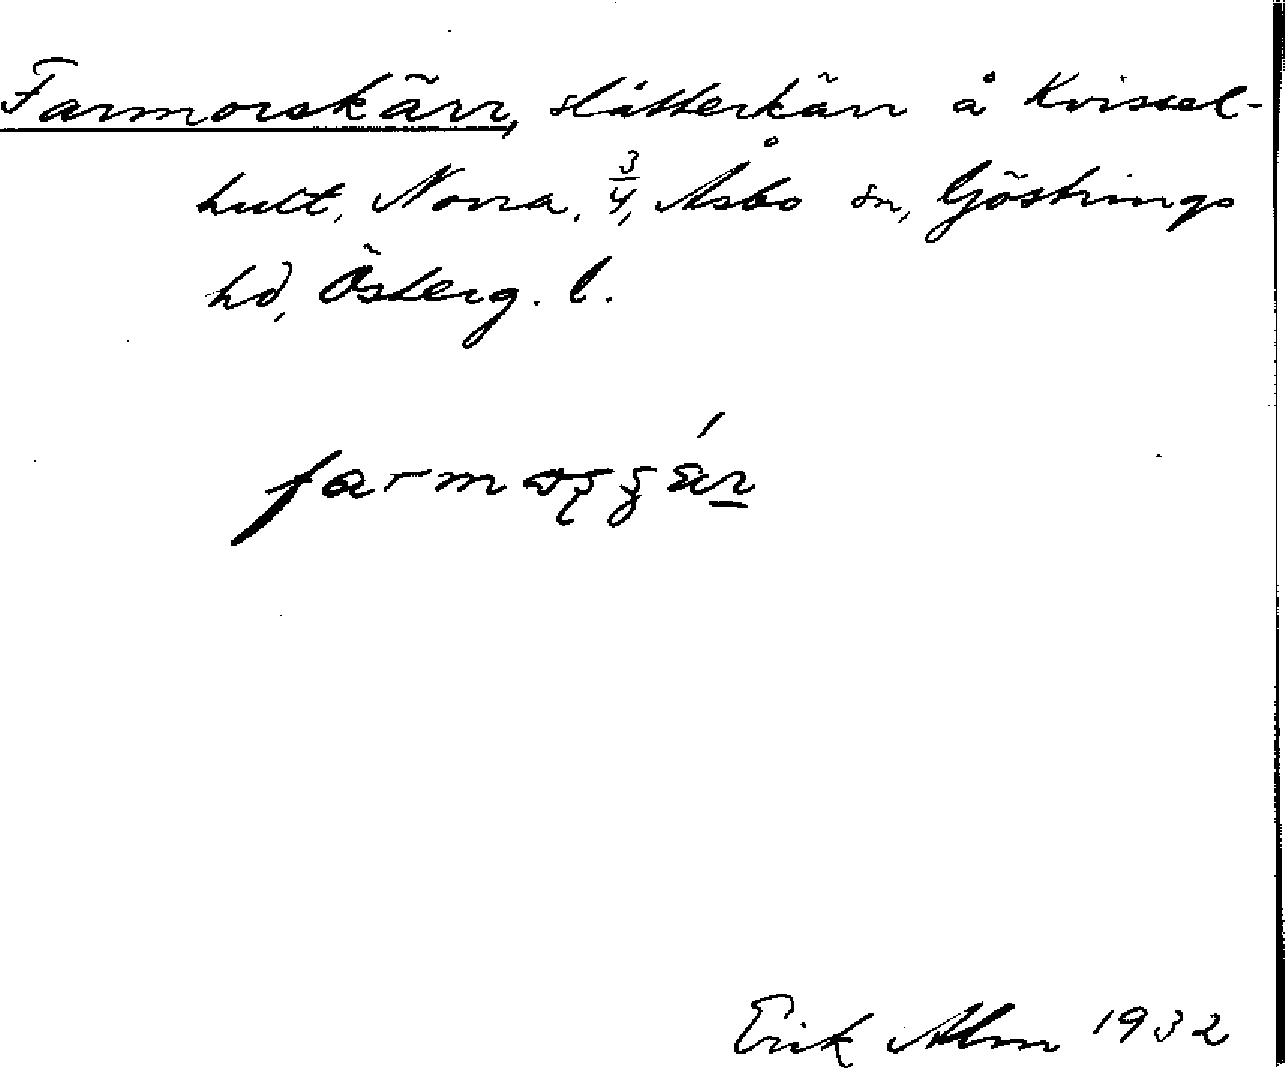 Farmorskärr, slåtterkärr å Kvissel-
hult, Norra, 3/4, Åsbo sn, Göstrings
hd, Österg. l.
Erik Alm 1932